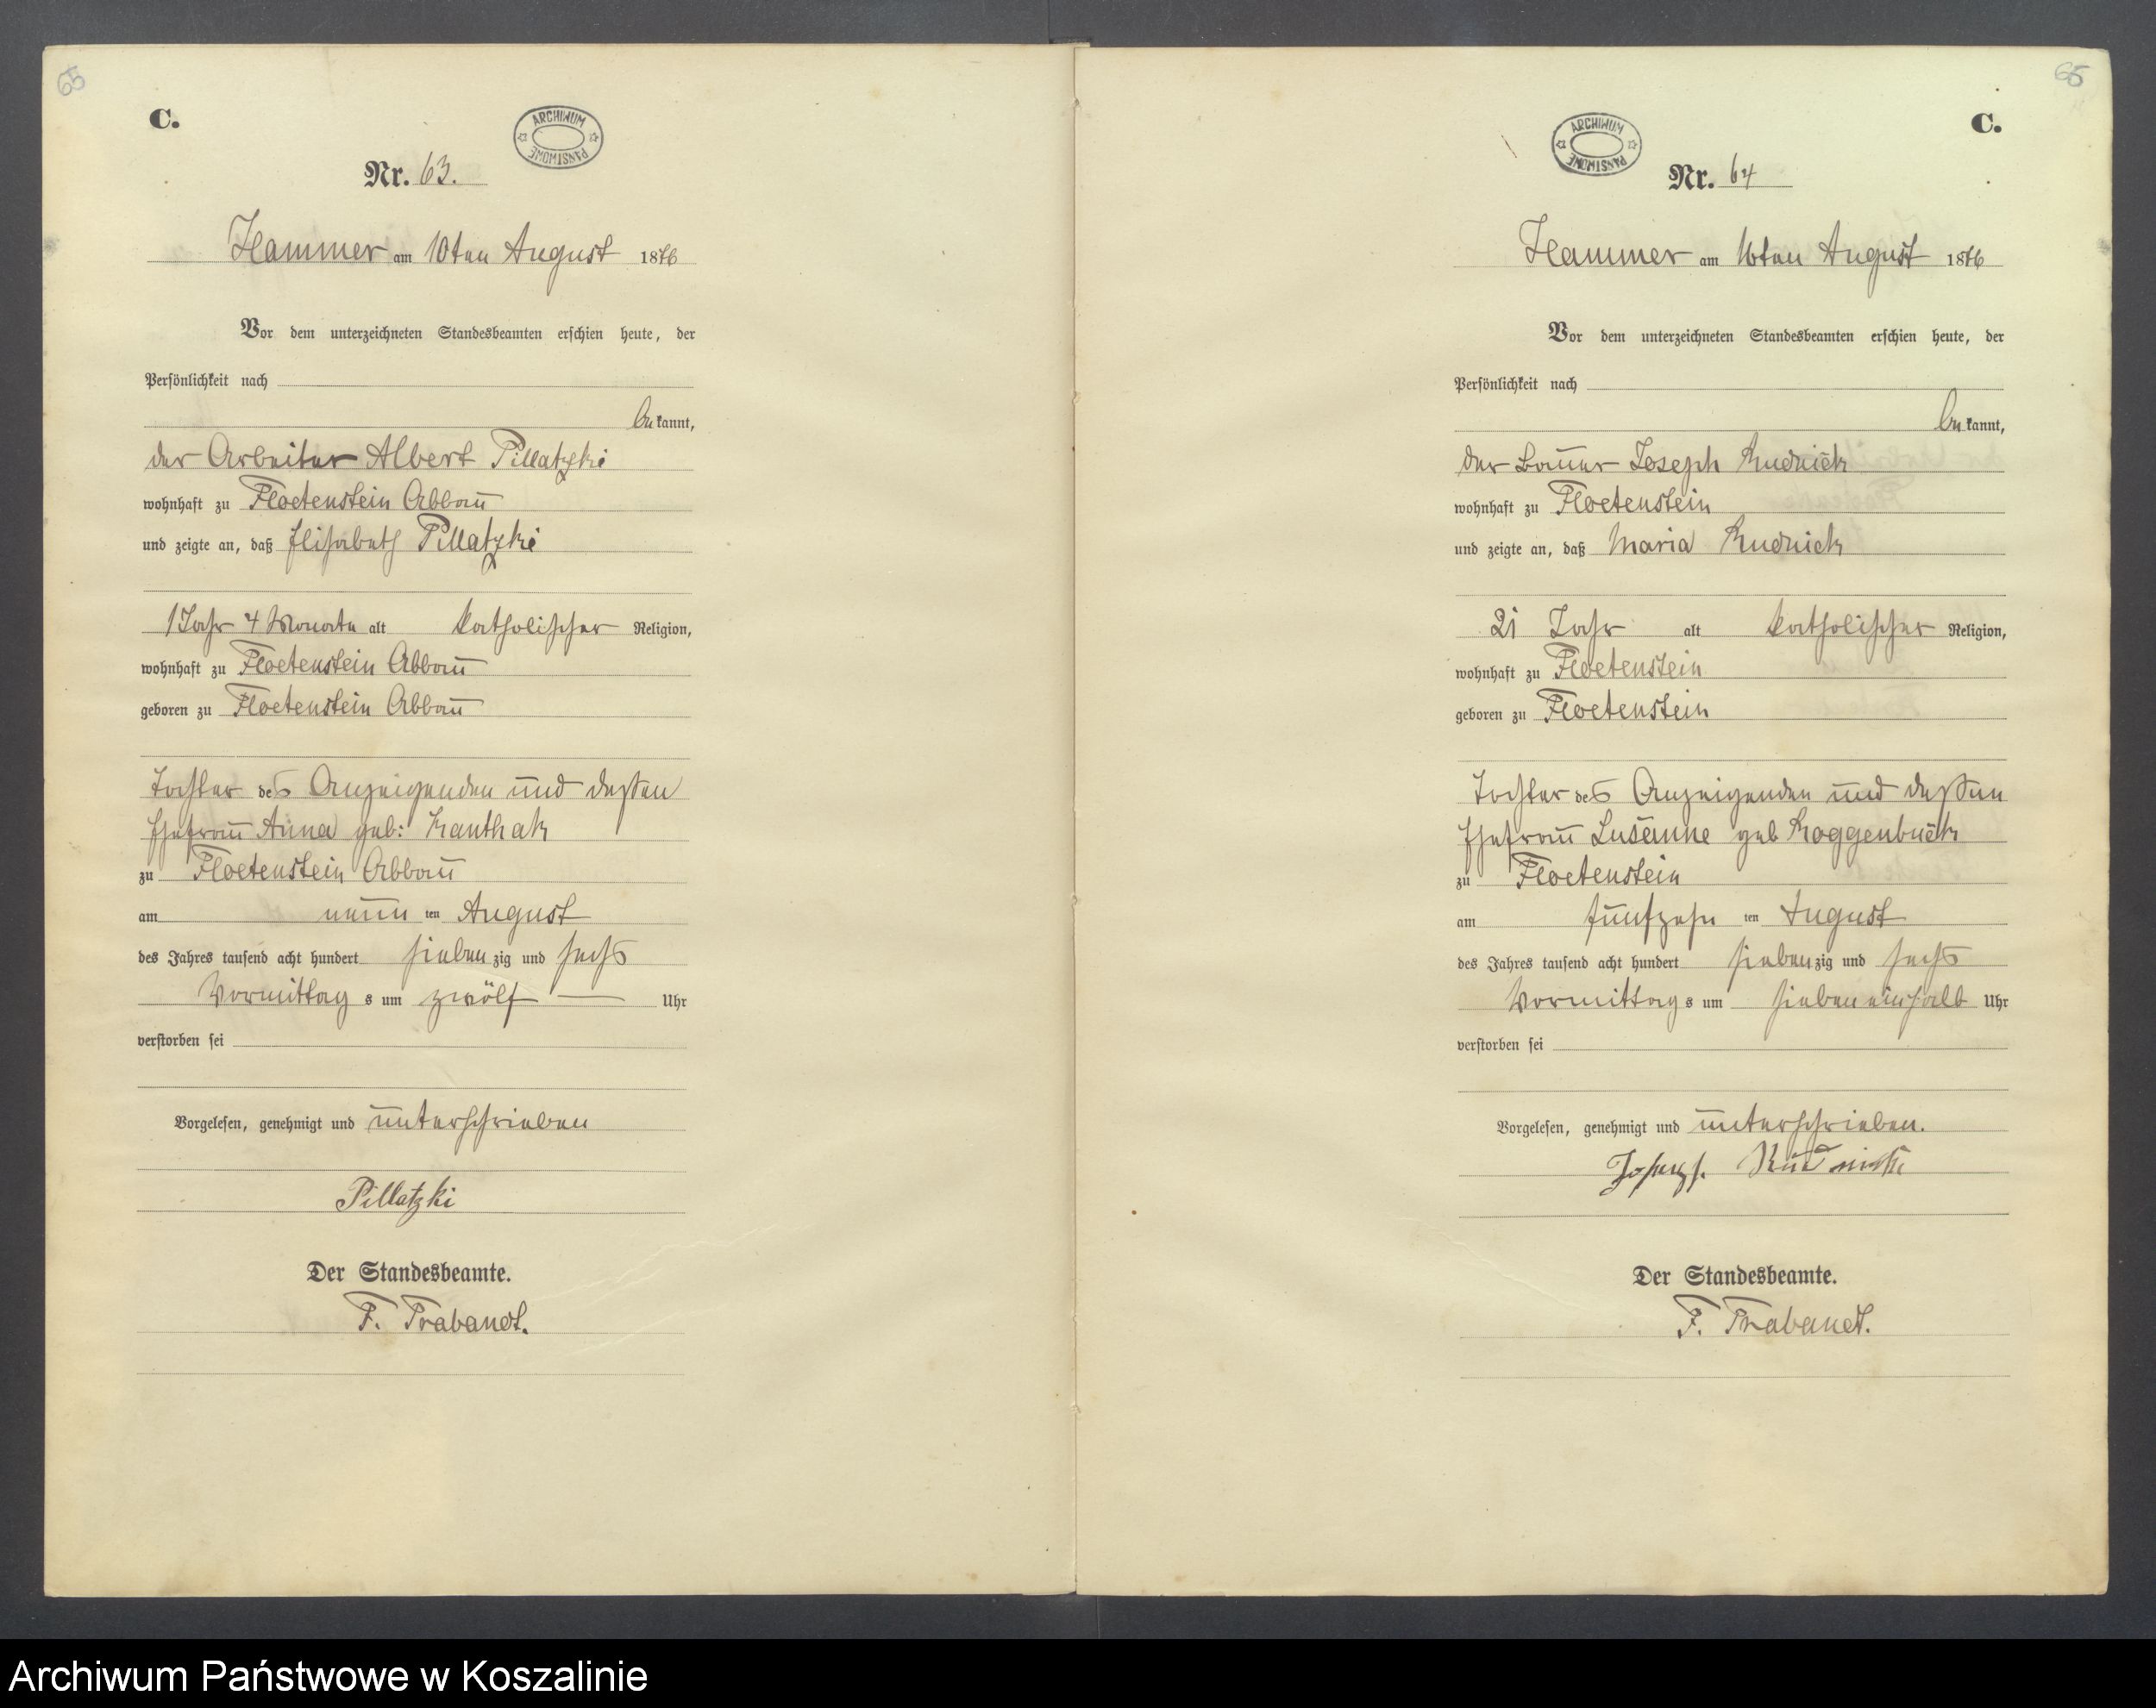 65
C.
ARCHIWUM PAŃSTWOWE
Nr. 63.
Hammer am 10ten August 1876
Vor dem unterzeichneten Standesbeamten erschien heute, der
Persönlichkeit nach
bekannt,
der Arbeiter Albert Pillatzki
wohnhaft zu Floetenstein Abbau
und zeigte an, daß Elisabeth Pillatzki
1 Jahr 4 Monate alt katholischer Religion,
wohnhaft zu Floetenstein Abbau
geboren zu Floetenstein Abbau
Tochter des Anzeigenden und dessen
Ehefrau Anna geb: Kanthak
zu Floetenstein Abbau
am neun ten August
des Jahres tausend acht hundert siebenzig und sechs
Vormittags um zwölf Uhr
verstorben sei
Vorgelesen, genehmigt und unterschrieben
Pillatzki
Der Standesbeamte.
F. Trabandt.
65
C.
ARCHIWUM PAŃSTWOWE
Nr. 64
Hammer am 16ten August 1876
Vor dem unterzeichneten Standesbeamten erschien heute, der
Persönlichkeit nach
bekannt,
der Bauer Joseph Rudnick
wohnhaft zu Floetenstein
und zeigte an, daß Maria Rudnick
21 Jahr alt katholischer Religion,
wohnhaft zu Floetenstein
geboren zu Floetenstein
Tochter des Anzeigenden und dessen
Ehefrau Susanne geb Roggenbuck
zu Floetenstein
am fünfzehn ten August
des Jahres tausend acht hundert siebenzig und sechs
Vormittags um sieben einhalb Uhr
verstorben sei
Vorgelesen, genehmigt und unterschrieben.
Joseph Rudnick
Der Standesbeamte.
F. Trabandt.
Archiwum Państwowe w Koszalinie